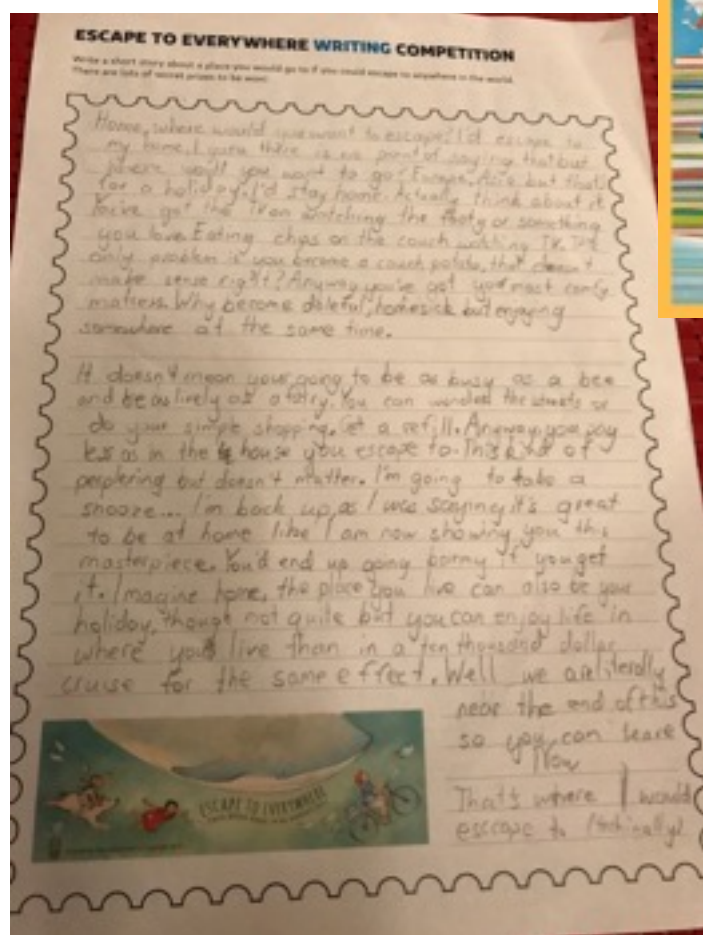 ESCAPE TO EVERYWHERE WRITING COMPETITION
Write a short story about a place you would go to if you could escape to anywhere in the world.
There are lots of secret prizes to be won!
Home, where would you want to escape? I'd escape to
my home. I guess there is no point of saying that but
where would you want to go? Europe, Asia but that's
for a holiday. I'd stay home. Actually think about it
You've got the watching the footy or something
you love. Eating chips on the couch watching TV. The
only problem is you become a couch potato, that doesn't
make sense right? Anyway you've got your most comfy
matress. Why become doleful, homesick but enjoying
somewhere at the same time.
It doesn't mean your going to be as busy as a bee
and be as lively as a fairy. You can the streets or
do your simple shopping. Get a refill. Anyway, you pay
less as in the house you escape to. This kind of
but doesn't matter. I'm going to take a
snooze... I'm back up, as I was saying it's great
to be at home like I am now showing you this
masterpiece. You'd end up going barmy if you get
it. Imagine home, the place you live can also be your
holiday, though not quite but you can enjoy life in
where you live than in a ten thousand dollar
cruise for the same effect. Well we are literally
near the end of this
so you can leave
Now
That's where I would
escape to
ESCAPE TO EVERYWHERE